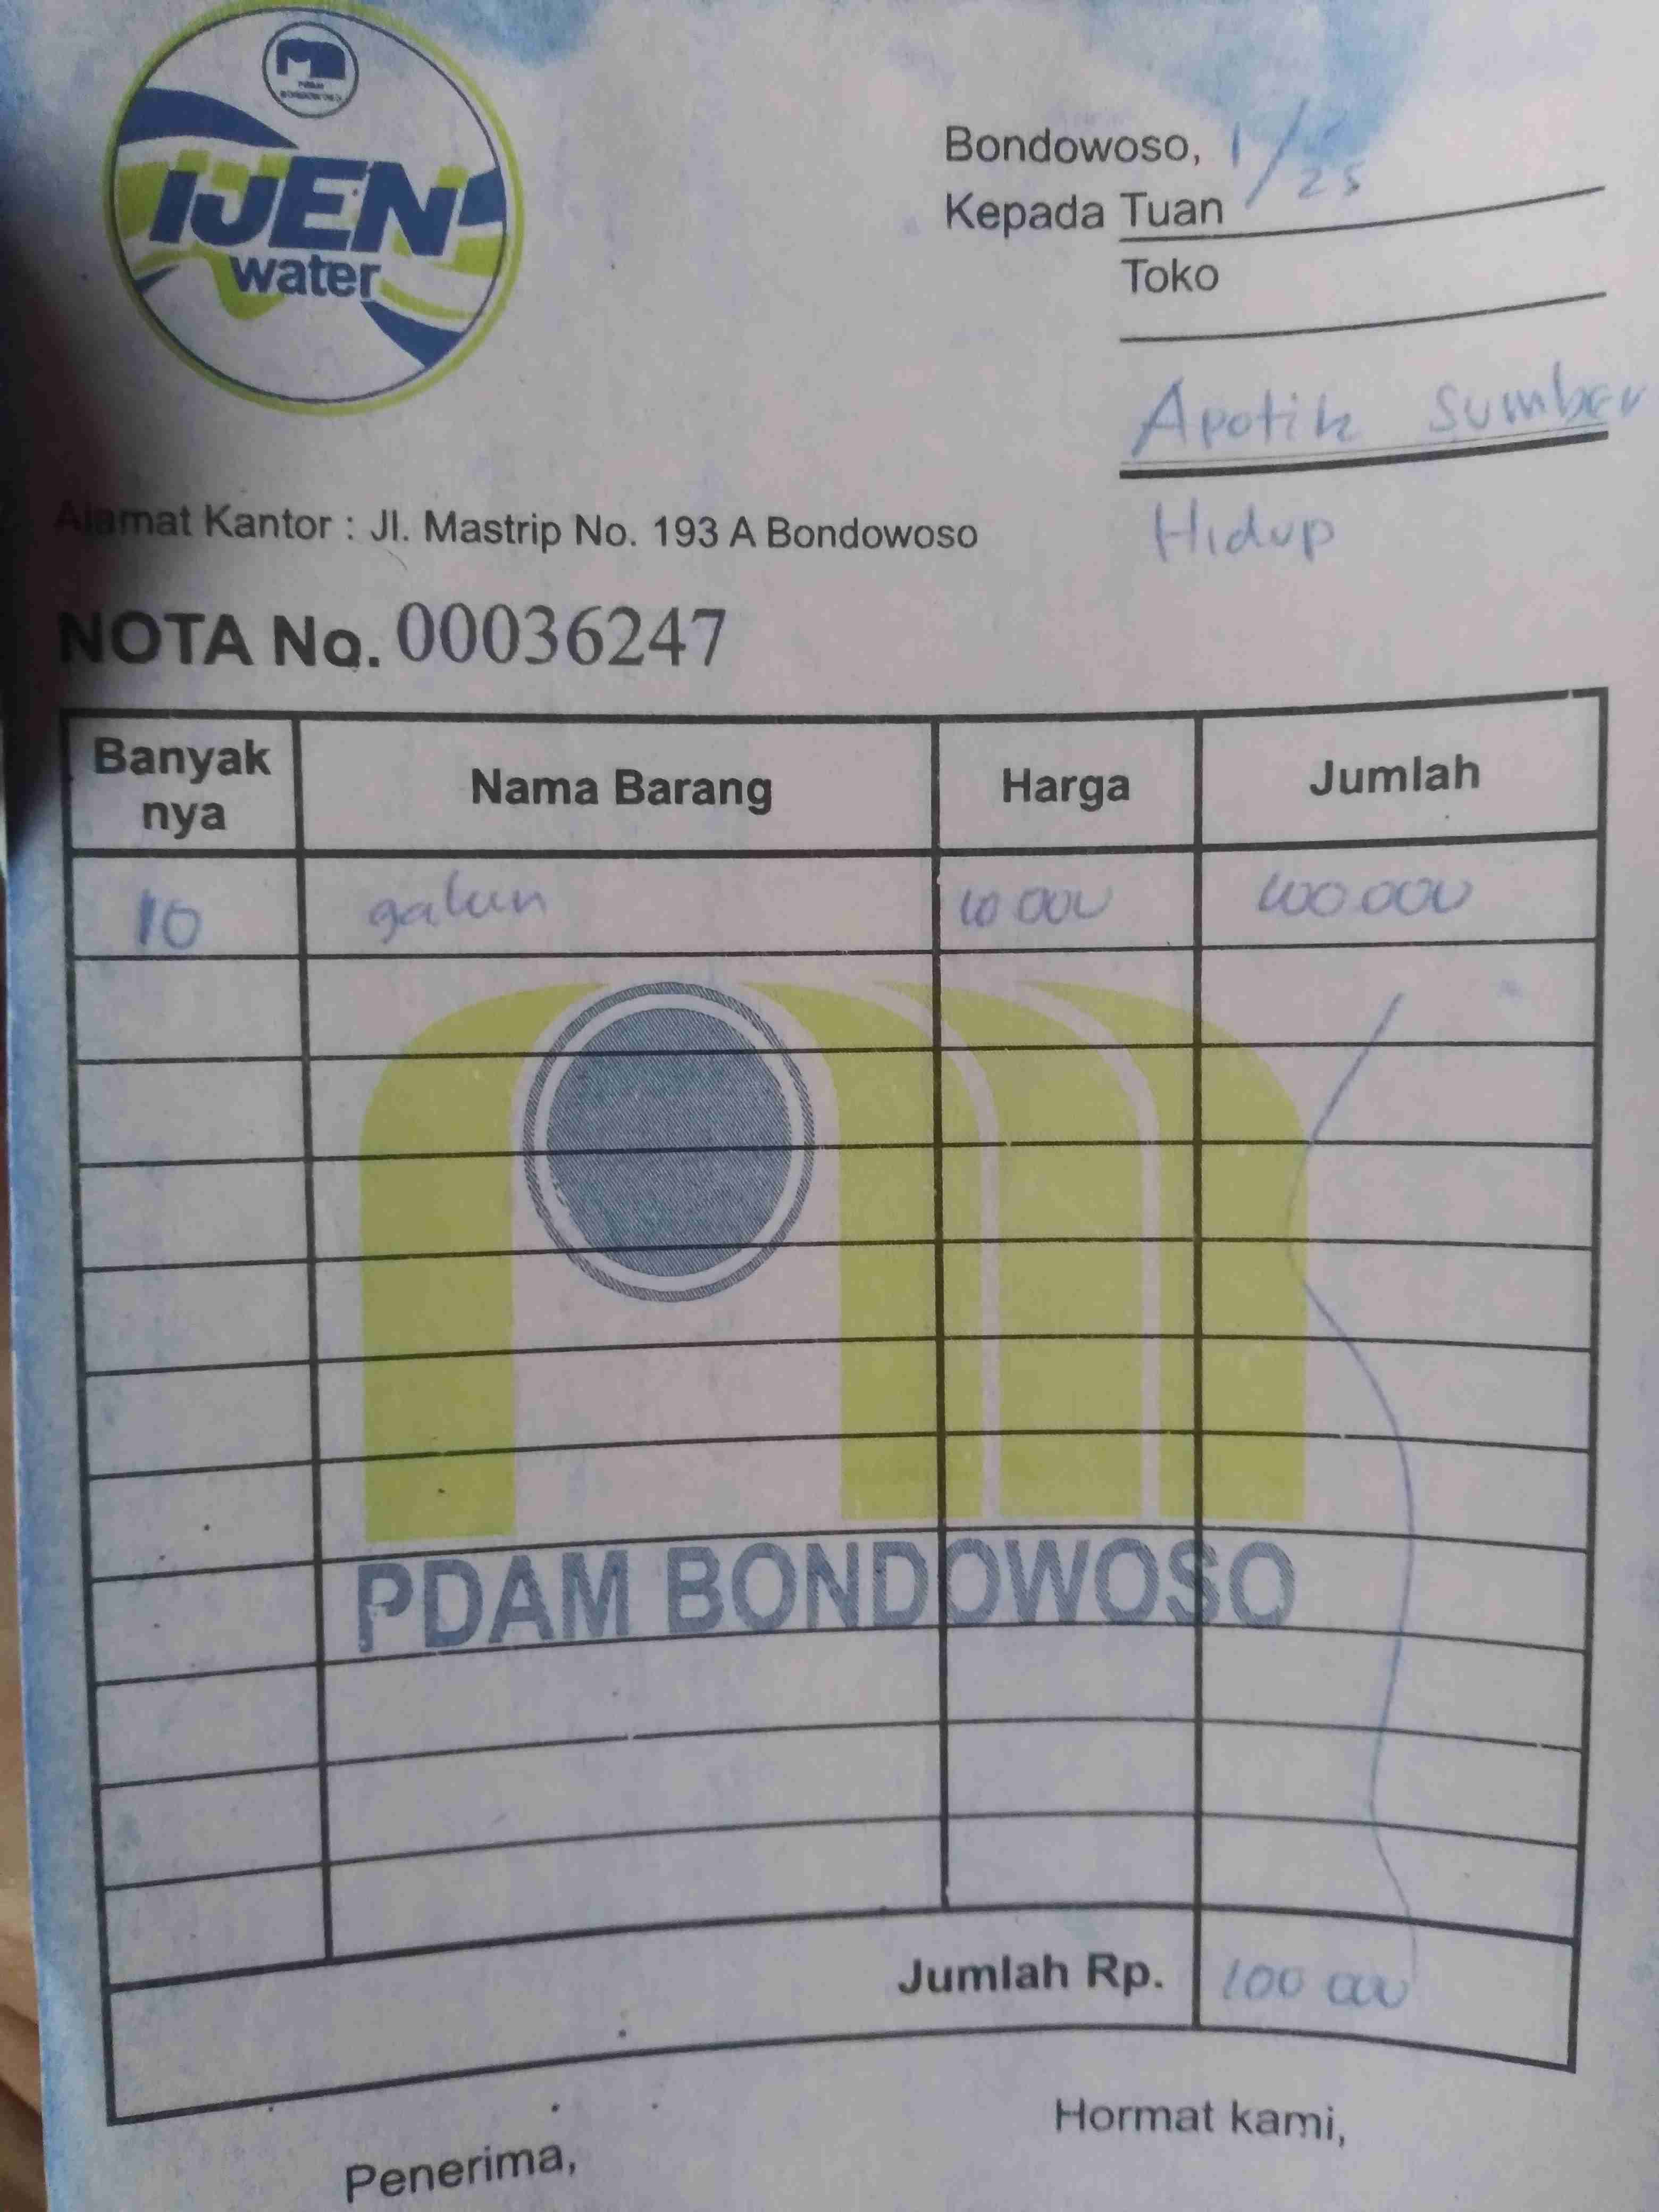 IJEN
water
Bondowoso, 1/25
Kepada Tuan
Toko
Apotik Sumber
Hidup
Alamat Kantor : Jl. Mastrip No. 193 A Bondowoso
NOTA No. 00036247
Banyak nya Nama Barang Harga Jumlah
10 galun 10 000 100.000
PDAM BONDOWOSO
Jumlah Rp. 100 000
Penerima, Hormat kami,